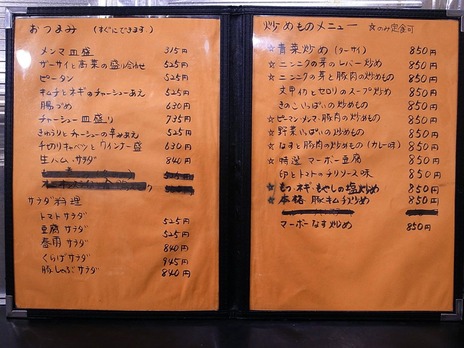 おつまみ (すぐにできます。)
メンマ皿盛 315円
ザーサイと高菜の盛り合わせ 525円
ピータン 525円
キムチとネギのチャーシューあえ 525円
腸づめ 630円
チャーシュー皿盛り 735円
きゅうりとチャーシューの辛みあえ 525円
千切りキャベツとウインナー盛 630円
生ハムサラダ 840円
サラダ料理
トマトサラダ 525円
豆腐サラダ 525円
春雨サラダ 840円
くらげサラダ 945円
豚しゃぶサラダ 840円
炒めものメニュー ☆のみ定食可
☆青菜炒め (ターサイ) 850円
☆ニンニクの芽のレバー炒め 850円
☆ニンニクの芽と豚肉の炒めもの 850円
文甲イカとセロリのスープ炒め 850円
きのこいっぱいの炒めもの 850円
☆ピーマンメンマ豚肉の炒めもの 850円
☆野菜いっぱいの炒めもの 850円
☆なすと豚肉の炒めもの(カレー味) 850円
☆特選 マーボー豆腐 850円
卵とトマトのチリソース味 850円
☆もつネギもやしの塩炒め 850円
☆本格 豚キムチ炒め 850円
マーボーなす炒め 850円